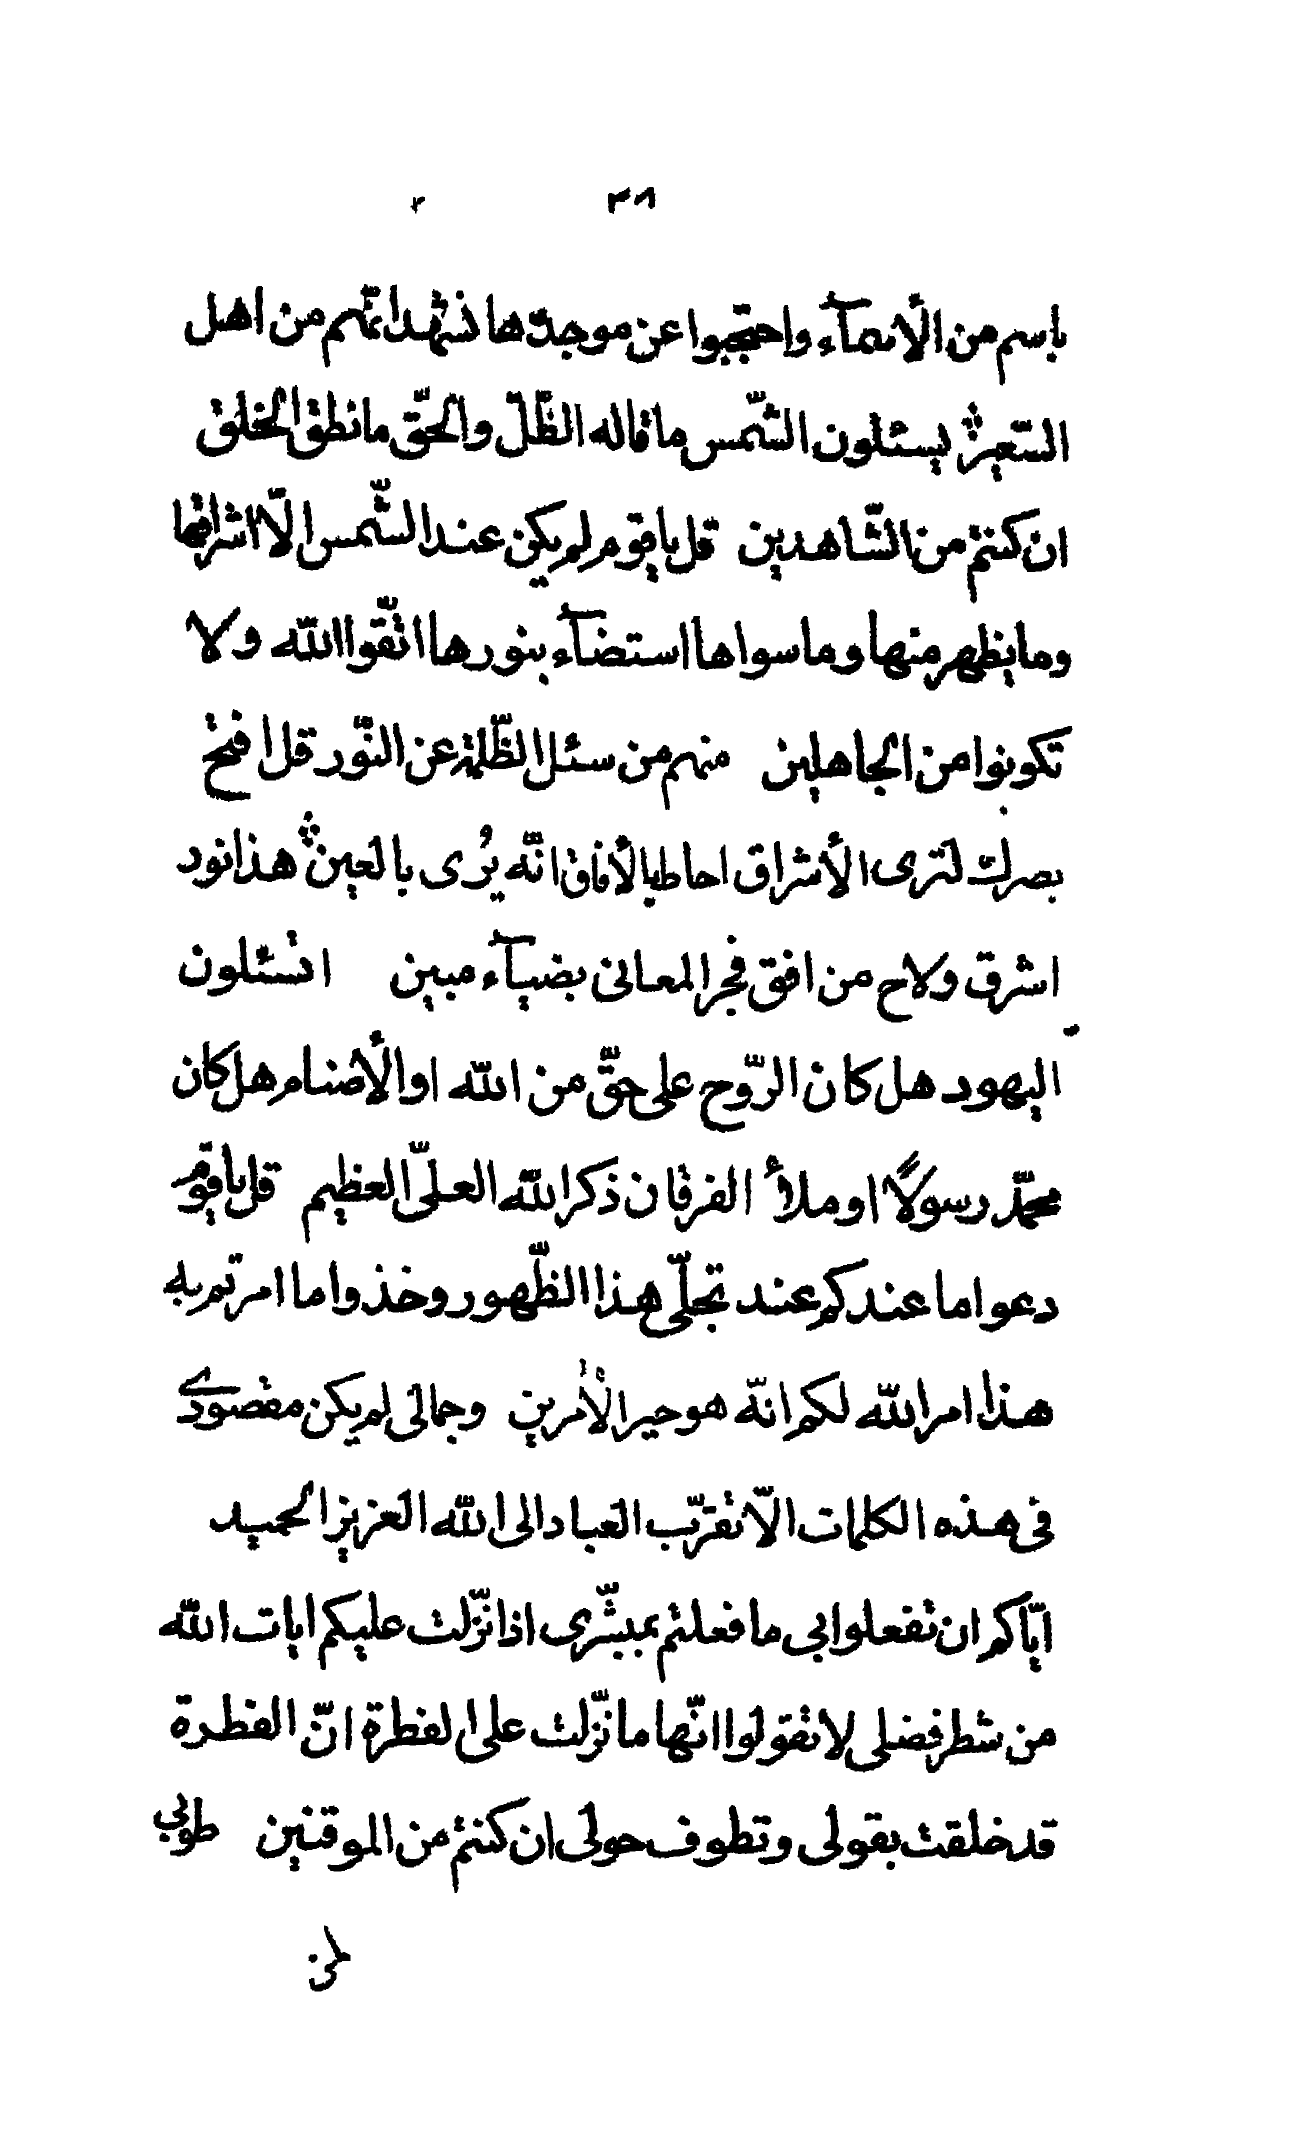 ٣٨ ٢
باسم من الأسمآء واحتجبوا عن موجدها نشهد انّهم من اهل
السّعير يسئلون الشّمس ما قاله الظّلّ والحقّ ما نطق الخلق
ان كنتم من الشّاهدين قل يا قوم لم يكن عند الشّمس الّا اشراقها
وما يظهر منها وما سواها استضآء بنورها اتّقوا الله ولا
تكونوا من الجاهلين منهم من سئل الظّلمة عن النّور قل افتح
بصرك لترى الأشراق احاط بالأفاق انّه يُرى بالعين هذا نور
اشرق ولاح من افق فجر المعانى بضيآء مبين اتسئلون
اليهود هل كان الرّوح على حقّ من الله او الأصنام هل كان
محمّد رسولًا او ملأ الفرقان ذكر الله العلىّ العظيم قل يا قوم
دعوا ما عندكم عند تجلّى هذا الظّهور وخذوا ما امرتم به
هذا امر الله لكم انّه هو خير الأمرين وجمالى لم يكن مقصودى
فى هذه الكلمات الّا تقرّب العباد الى الله العزيز الحميد
ايّاكم ان تفعلوا بى ما فعلتم بمبشّرى اذا نزّلت عليكم ايات الله
من شطر فضلى لا تقولوا انّها ما نزّلت على الفطرة انّ الفطرة
قد خلقت بقولى وتطوف حولى ان كنتم من الموقنين طوبى
لمن